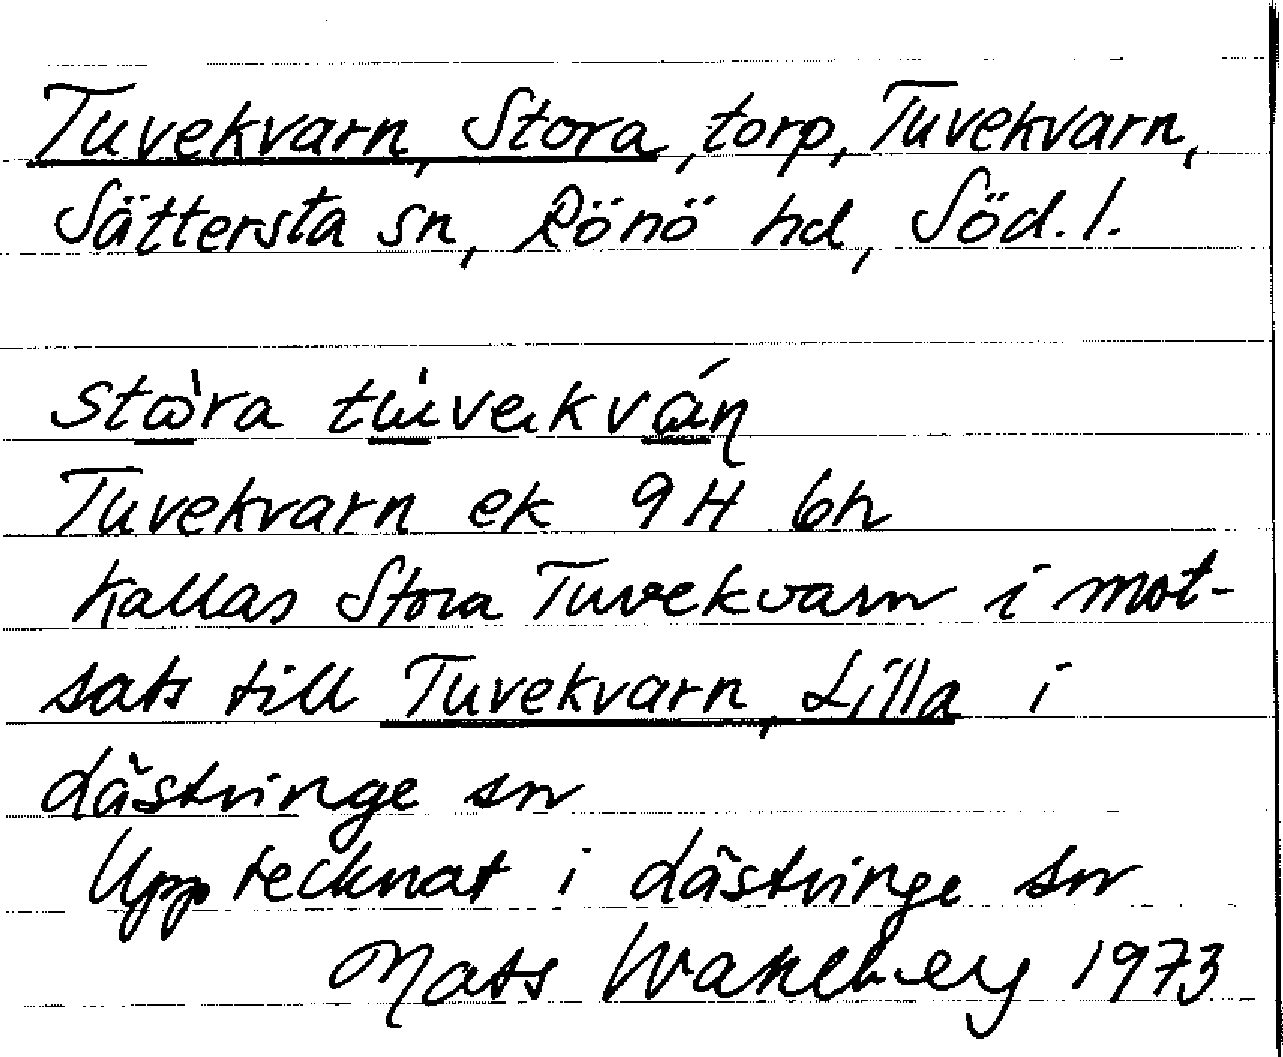 Tuvekvarn, Stora, torp, Tuvekvarn,
Sättersta sn, Rönö hd, Söd. l.
stὼra tɯ̀vekván
Tuvekvarn ek 9H 6h
Kallas Stora Tuvekvarn i mot-
sats till Tuvekvarn, Lilla i
Lästringe sn
Upptecknat i Lästringe sn
Mats Wahlberg 1973